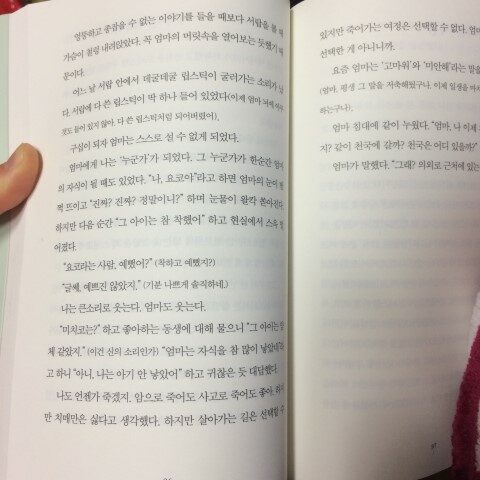 엉뚱하고 종잡을 수 없는 이야기를 들을 때보다 서랍을 볼 때
가슴이 철렁 내려앉았다. 꼭 엄마의 머릿속을 열어보는 듯했기 때
문이다.
어느 날 서랍 안에서 데굴데굴 립스틱이 굴러가는 소리가 났
다. 서랍에 다 쓴 립스틱이 딱 하나 들어 있었다(이제 엄마
것도 들어 있지 않아. 다 쓴 립스틱처럼 되어버렸어).
구십이 되자 엄마는 스스로 설 수 없게 되었다.
엄마에게 나는 '누군가'가 되었다. 그 누군가가 한순간 엄마
의 자식이 될 때도 있었다. "나, 요코야"라고 하면 엄마의 눈이 번
쩍 뜨이고 "진짜? 진짜? 정말이니?" 하며 눈물이 왈칵 쏟아진다.
하지만 다음 순간 "그 아이는 참 착했어" 하고 현실에서 스윽 멀
어졌다.
"요코라는 사람, 예뻤어?" (착하고 예뻤지?)
"글쎄, 예쁘진 않았지." (기분 나쁘게 솔직하네.)
나는 큰소리로 웃는다. 엄마도 웃는다.
"미치코는?" 하고 좋아하는 동생에 대해 물으니 "그 아이는
체 같았지." (이건 신의 소리인가) "엄마는 자식을 참 많이 낳았네"라
고 하니 "아니, 나는 아기 안 낳았어" 하고 귀찮은 듯 대답했다.
나도 언젠가 죽겠지. 암으로 죽어도 사고로 죽어도 좋아. 하지
만 치매만은 싫다고 생각했다. 하지만 살아가는 길은 선택할 수
있지만 죽어가는 여정은 선택할 수 없다. 엄마
선택한 게 아니니까.
요즘 엄마는 '고마워'와 '미안해'라는 말을
(엄마, 평생 그 말을 저축해뒀구나. 이제 일생을 마치
하는구나).
엄마 침대에 같이 누웠다. "엄마, 나 이제
지? 같이 천국에 갈까? 천국은 어디 있을까?"
엄마가 말했다. "그래? 의외로 근처에 있는
97